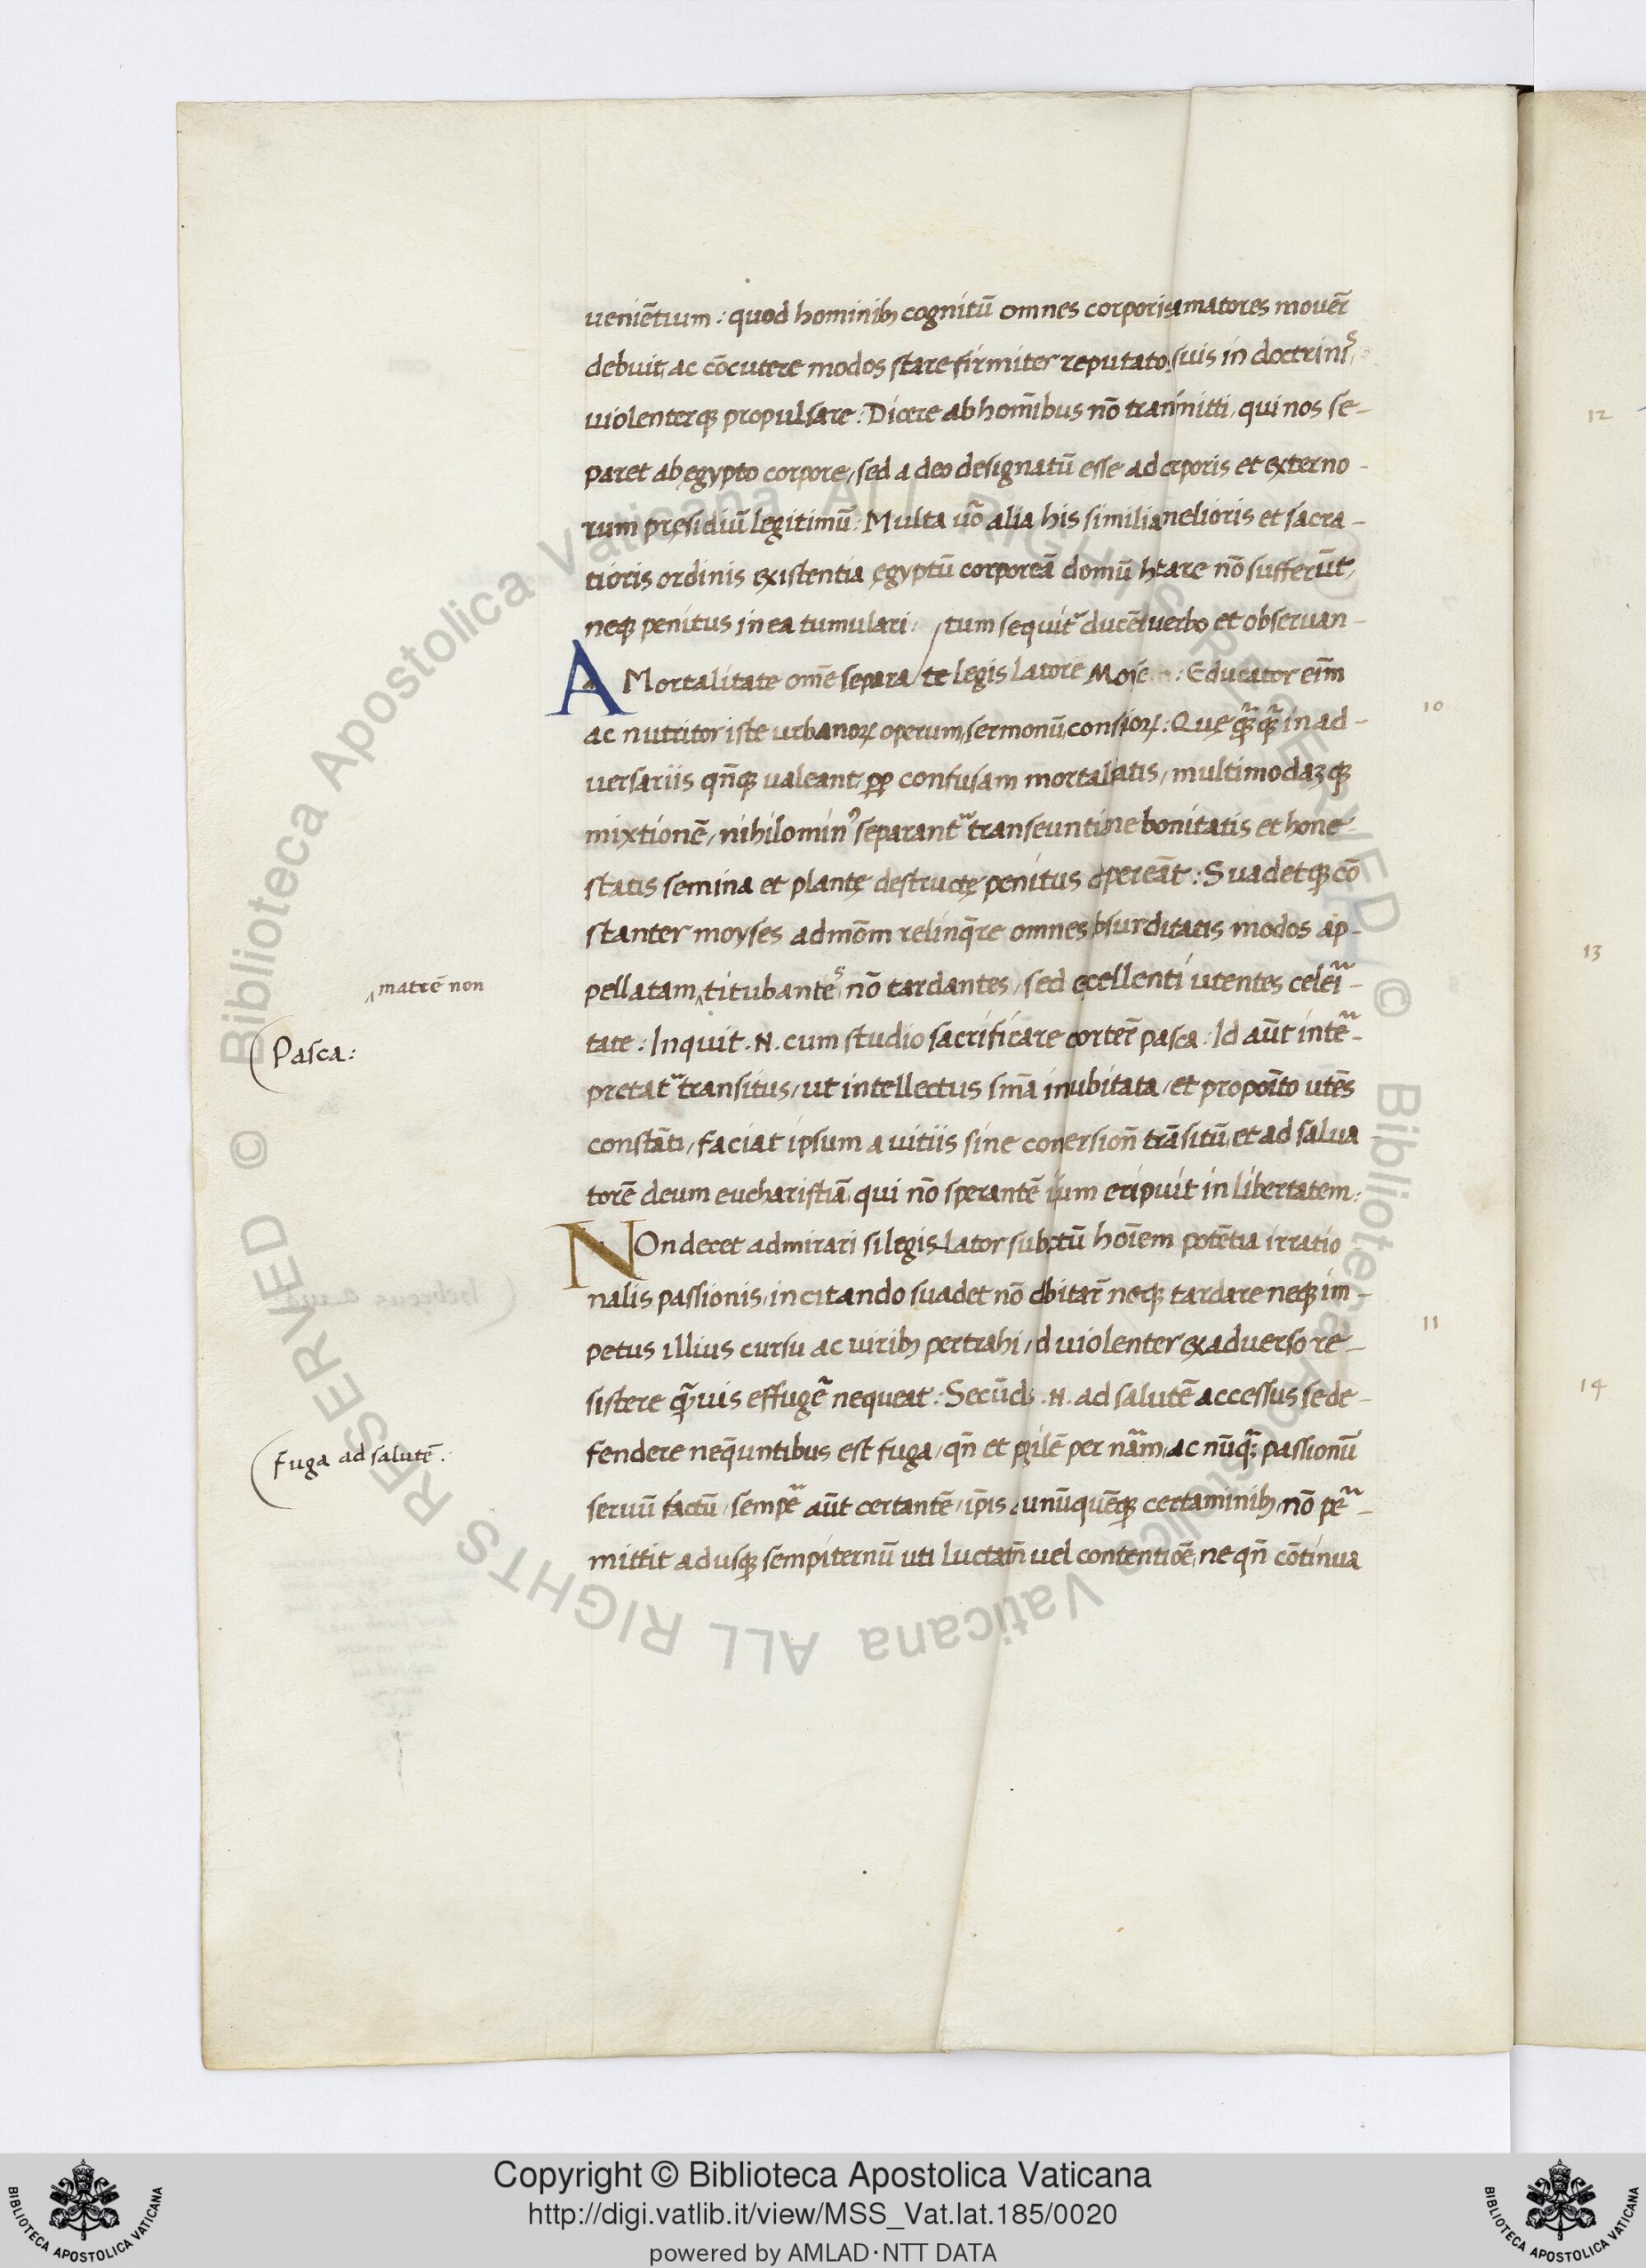 ueniētium : quod hominib; cognitū omnes corporis amatores mouer̄
debuit, ac cōcutere modos stare firmiter reputato suis in doctrinis
uiolenterq; propulsare : Dicere ab hom̄ibus nō tran mitti, qui nos se-
paret ab ęgypto corpore, sed a deo designatū esse ad crporis et externo-
rum pręsidiū legitimū : Multa uō alia his similia nelioris et sacra-
tioris ordinis existentia ęgyptū corporeā domū htare nō sufferūt,
neq; penitus in ea tumulari : tum sequit᷑ ducē uerbo et obseruan-
A Mortalitate om̄e separa te legis latorē Moise : Educator eīm
ac nutritor iste urbanoꝝ operum, sermonū, consioꝝ : Quę in ad-
uersariis qn̄q; ualeant, ꝓp confusam mortalatis, multimodazq;
mixtionē, nihilomin᷒ separant᷑ transeunti ne bonitatis et hone
statis semina et plantę destructę penitus dpereāt : Suadetq; cō
stanter moyses ad mōm relinq̄re omnes bsurditatis modos ap-
pellatam, titubantes nō tardantes, sed ecellenti utentes celei-
tate : Inquit .N. cum studio sacrificare portēr pasca : Id aūt inte-
pretat᷑ transitus, ut intellectus sm̄a inubitata, et propoīto utēs
constāti, faciat ipsum a uitiis sine conersion̄ trāsitū, et ad salua
torē deum eucharistiā, qui nō sperantē ium eripuit in libertatem :
NOn decet admirari si legis lator subctū hoīem potētia irratio
nalis passionis, incitando suadet nō dbitar̄ neq; tardare neq; im-
petus illius cursu ac uirib; pertrahi, d uiolenter ex aduerso re-
sistere quis effugē nequeat : Secūd; .N. ad salutē accessus se de-
fendere neq̄untibus est fuga, qn̄ et pilē per nām, ac nūq; passionū
seruū factū, sempe aūt certantē, ip̄is unūquēq; certaminib; nō pe-
mittit adusq; sempiternū uti luctatn̄ uel contentiōe, ne qn̄ cōtinua
matrē non
Pasca :
Fuga ad salutē :
10
11
12
13
14
Copyright © Biblioteca Apostolica Vaticana
http://digi.vatlib.it/view/MSS_Vat.lat.185/0020
powered by AMLAD·NTT DATA
BIBLIOTECA APOSTOLICA VATICANA
BIBLIOTECA APOSTOLICA VATICANA
© Biblioteca Apostolica Vaticana ALL RIGHTS RESERVED © Biblioteca Apostolica Vaticana ALL RIGHTS RESERVED